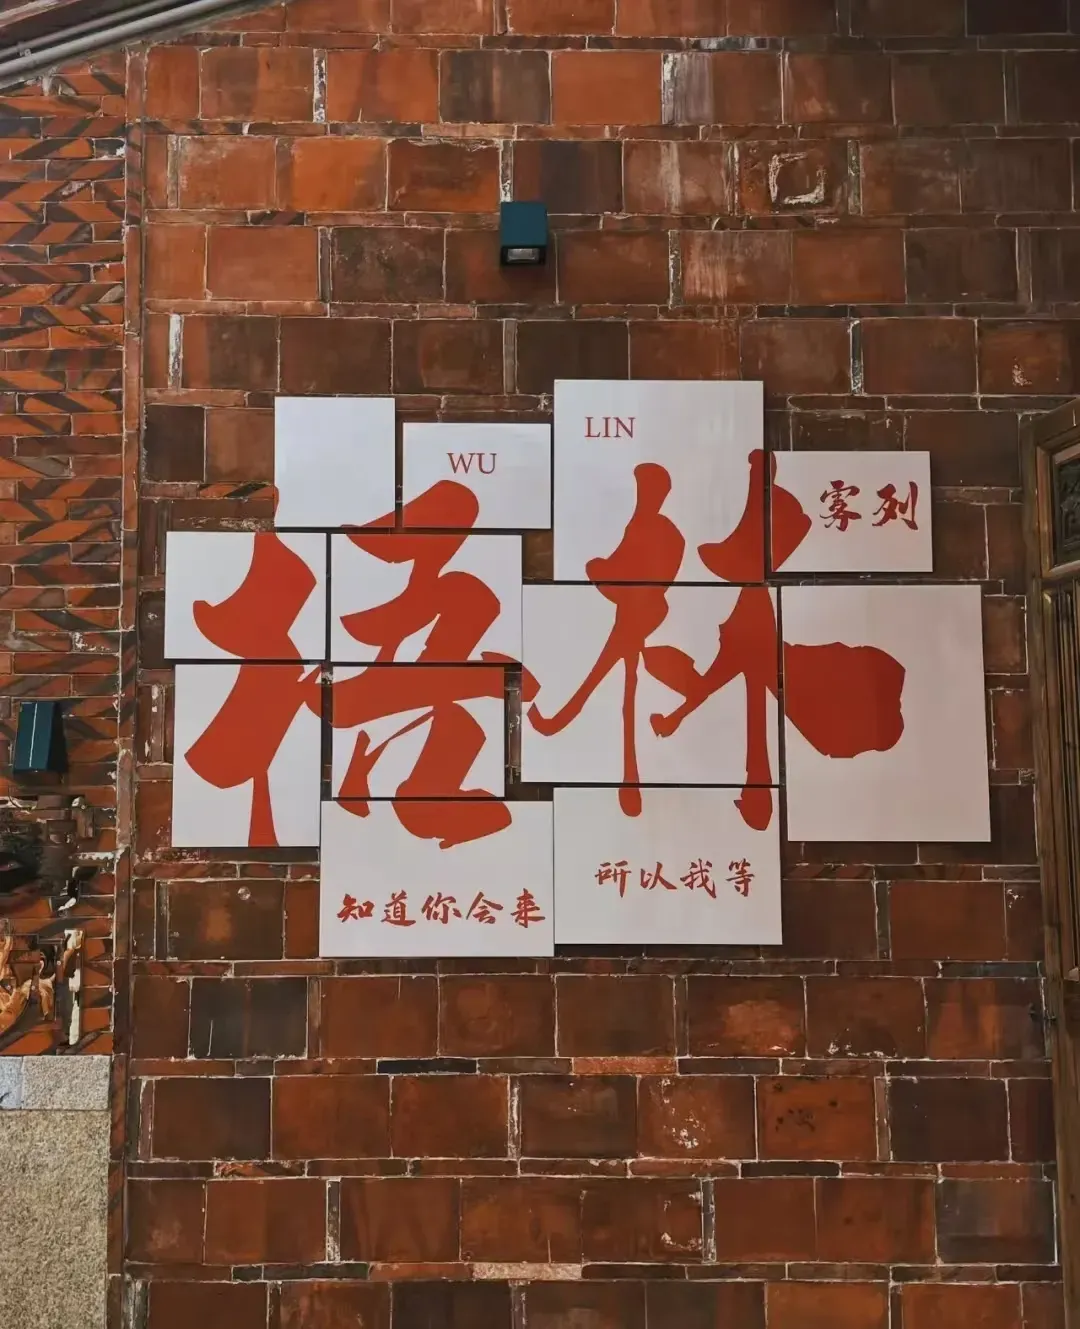 WU LIN
梧林
雾列
知道你会来
所以我等